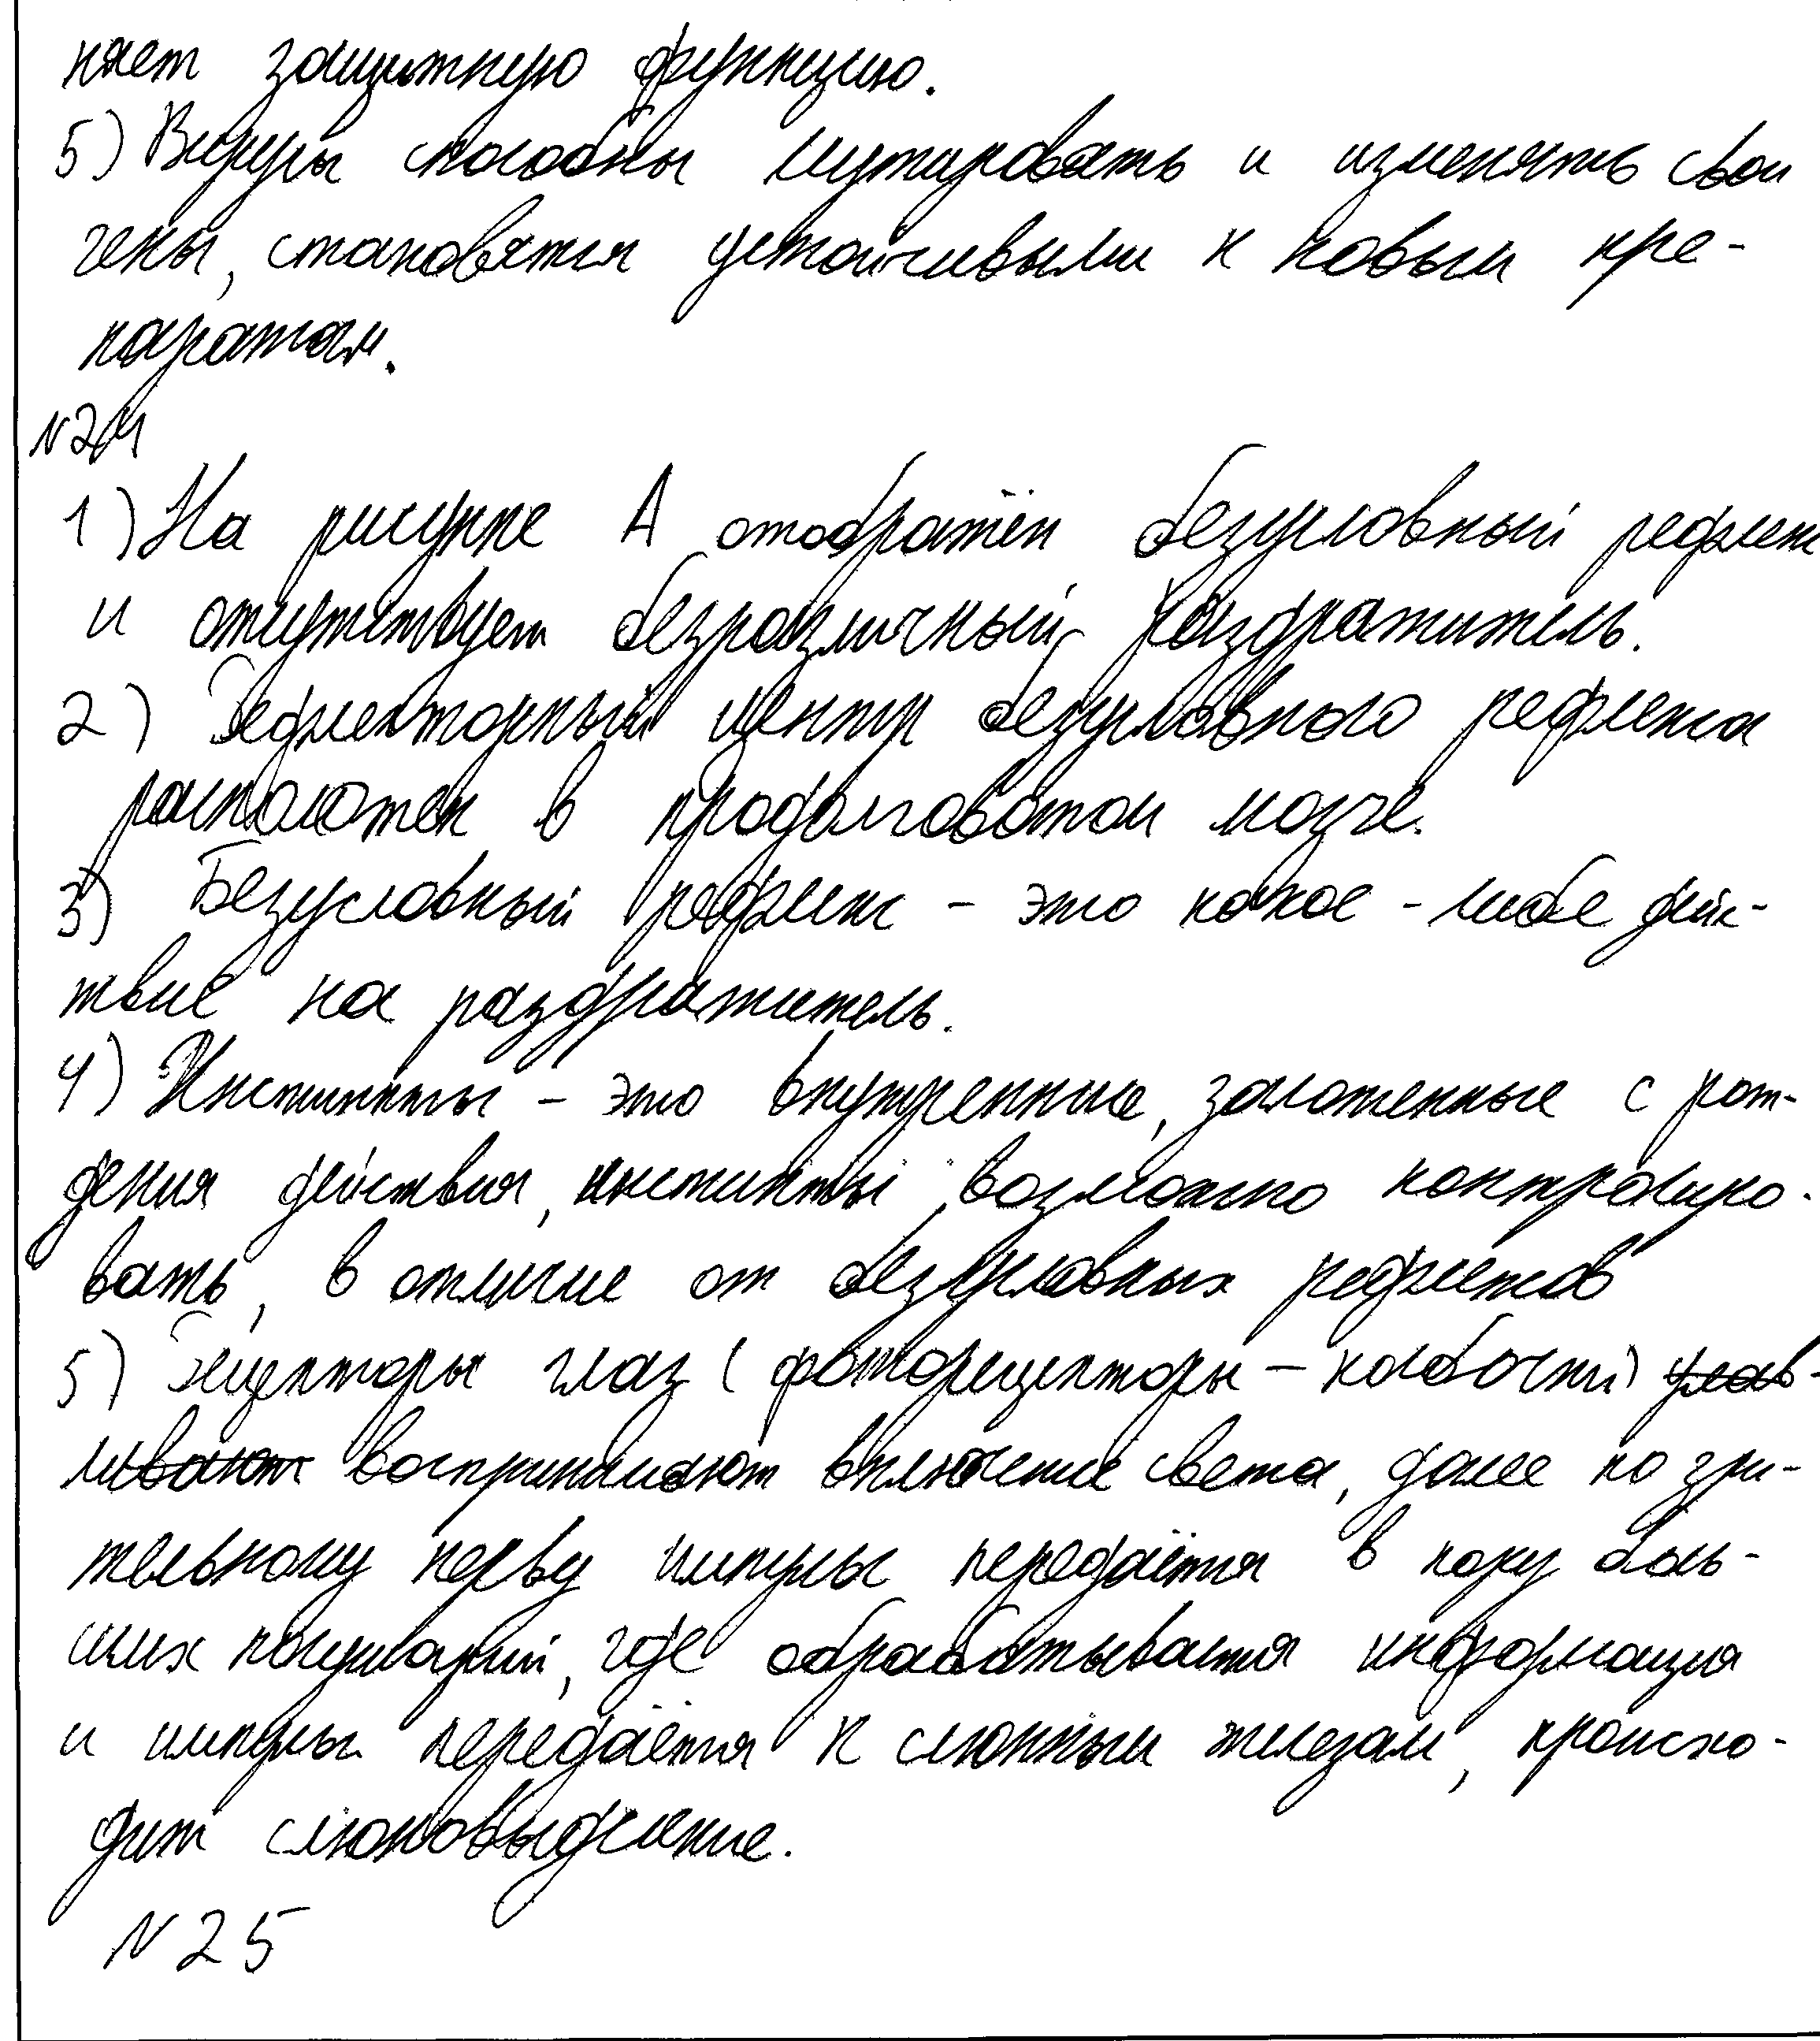 няет защитную функцию.
5) Вирусы способны мутировать и изменять свои
гены, становятся устойчивыми к новым пре-
паратам.
№24
1) На рисунке А отображён безусловный рефлекс
и отсутствует безразличный раздражитель.
2) Рефлекторный центр безусловного рефлекса
расположен в продолговатом мозге.
3) Безусловный рефлекс - это какое-либо дейс-
твие на раздражитель.
4) Инстинкты - это внутренние, заложенные с рож-
дения действия, инстинкты возможно контролиро-
вать, в отличие от безусловных рефлексов
5) Рецепторы глаз (фоторецепторы - колбочки) улав-
ливают воспринимают включение света, далее по зри-
тельному нерву импульс передаётся в кору боль-
ших полушарий, где обрабатывается информация
и импульс передаётся к слюнным железам, происхо-
дит слюновыделение.
№25